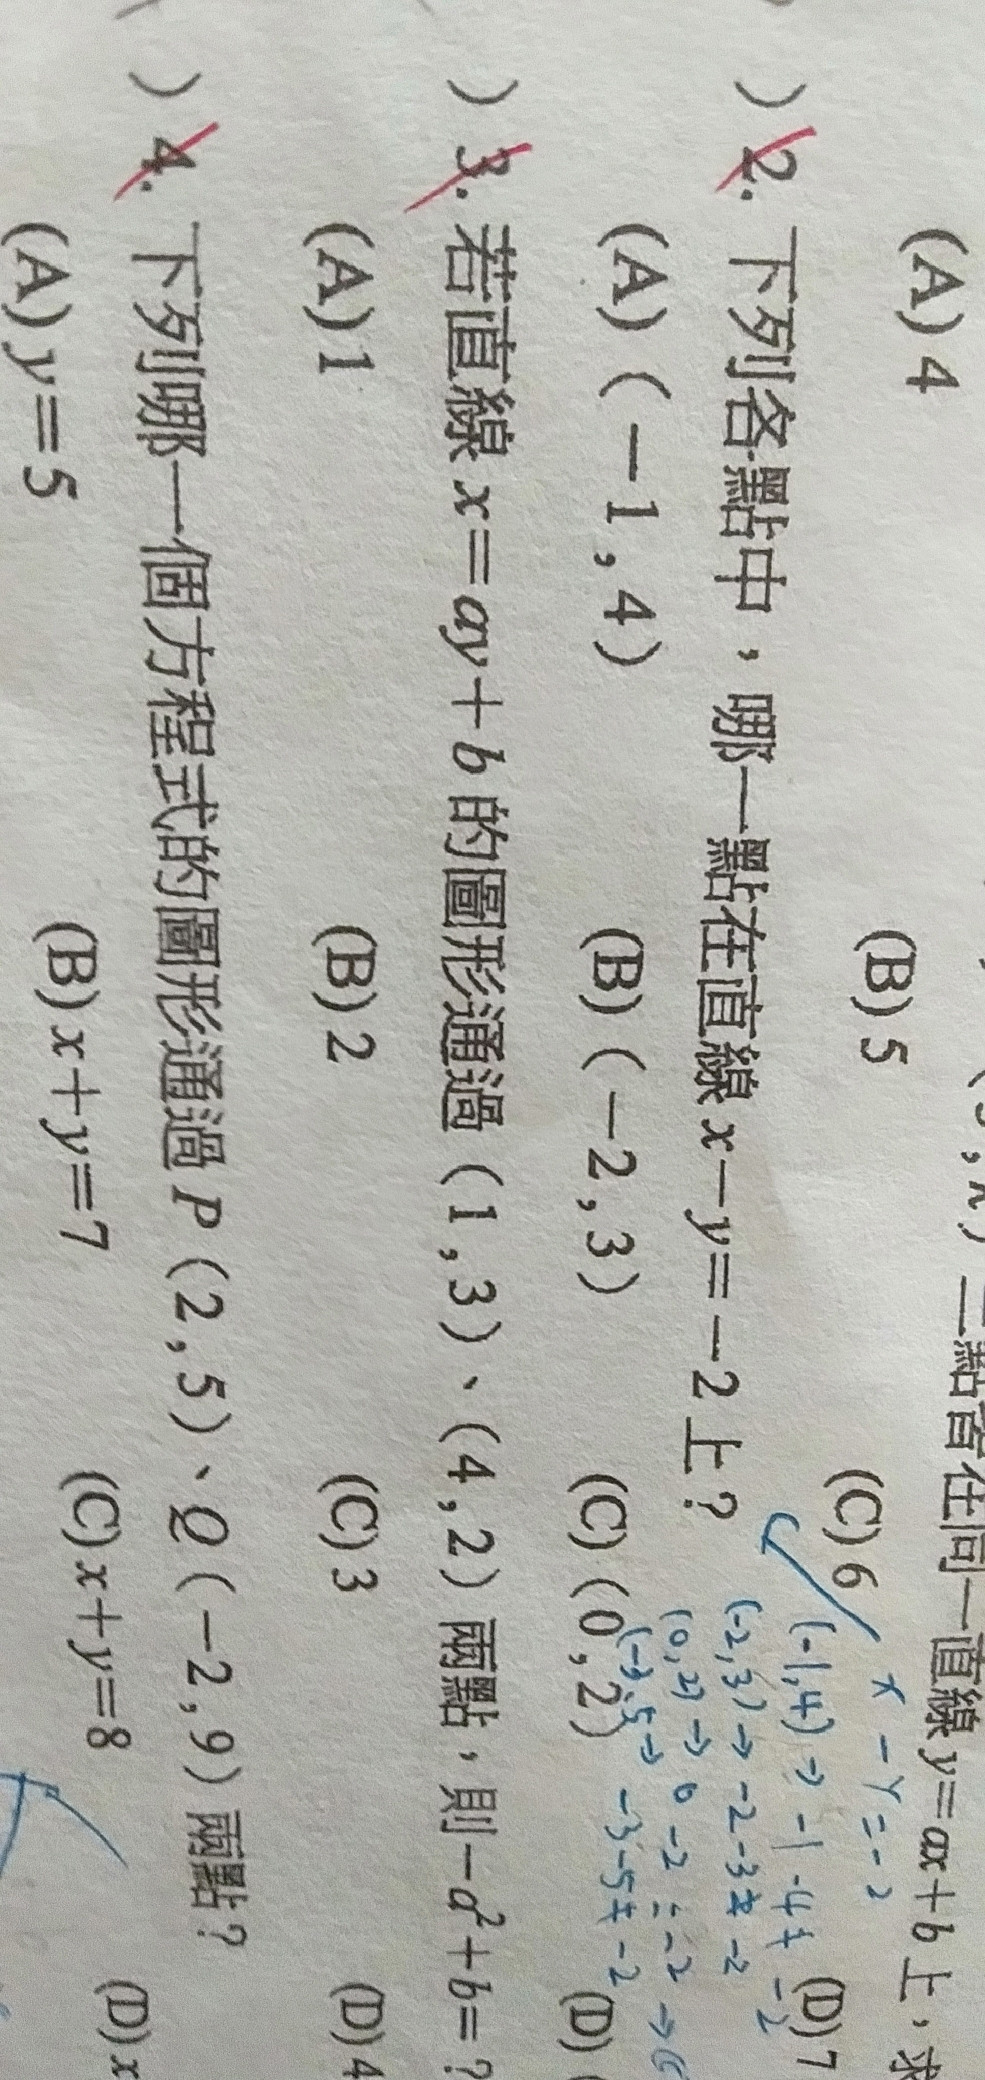 二點皆在同一直線 y=ax+b 上,求
(A) 4 (B) 5 (C) 6 (D) 7
x-y=-2
(-1,4) → -1-4≠-2
) 2. 下列各點中,哪一點在直線 x-y=-2 上?
(-2,3) → -2-3≠-2
(0,2) → 0-2=-2 →
(A) (-1,4) (B) (-2,3) (C) (0,2) (D) (
(-3,5 → -3-5≠-2
) 3. 若直線 x=ay+b 的圖形通過 (1,3)、(4,2) 兩點,則 -a²+b=?
(A) 1 (B) 2 (C) 3 (D) 4
) 4. 下列哪一個方程式的圖形通過 P (2,5)、Q (-2,9) 兩點?
(A) y=5 (B) x+y=7 (C) x+y=8 (D) x